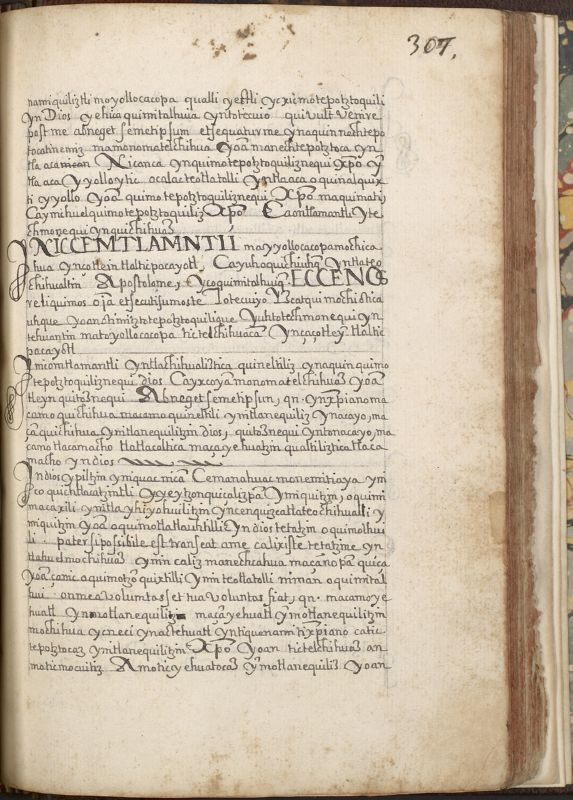 307.
namiquiliztli moyollocacopa qualli yectli ycxicmotepotztoquili
yn Dios yehica quimitalhuia yntotecuio qui vult venire
post me abneget semetipsum et sequatur me ynaquin nechtepo
tocatinemiz ma monomatelchihua yoā manechtepotztoca yn
tla acamican Nicanca ynquimotepotztoquiliznequi Xp̄o y
tla aca yyolloytic ocalac teotlatolli yntlaaca oquinalquix
ti yyollo yoā quimotepotztoquiliznequi Xp̄o maquimati
Caymihuel quimotepotztoquiliz Xp̄o Caontlamantli yte
chmonequi ynquichihuaz
INIC CEMTLAMNTII mayyollocacopa mochica
hua yncotlein tlalticpacayotl Cayuhoquichiuhq̄ yntlateo
chihualtin Apostolome, ycoquimitalhuiq̄ ECCE NOS
reliquimos oīa et secuti sumus te Totecuiyo yzcatqui mochi otica
uhque yoan otimitztotepotztoquilique yuhtotechmonequi yn
tehuantin matoyollocacopa tictelchihuacā yncaçotleyn tlaltic
pacayotl
Inic ontlamantli yntlachihualiztica quineltiliz ynaquin quimo
tepotztoquiliznequi dios Cayxcoya monomatelchihuaz yoā
tleyn quitoznequi Abneget semetipsun, qn. ynxpiano ma
camo quichihua macamo quineltili ymtlanequiliz ynacayo, ma
çā quichihua ymtlanequilitzin dios, quitoznequi yntonacayo, ma
camo tlacamacho tlatlacoltica maça yehuatzin qualtiliztica tlaca
macho yn dios
In dios ypiltzin yniquac nicā Cemanahuac monemitiaya ymi
co quichtlacatzintli yyxeytzonquicalizpā ymiquitzin, oquimi
macaxili ymtla yhiyohuilitzin yncenquizcatlateochihualli y
miquitzin yoā oquimotlatlauhtilli yn dios tetatzin oquimolhui
li. pater si possibile est transeat ame calix iste tetatzine yn
tlahuelmochihuaz ynin caliz manechcahua macanopā quiça
yoā çanic oquimotzōquixtilli ynin teotlatolli niman oquimital
hui. on mea voluntas set tua voluntas fiat, qn. macamo ye
huatl ynnotlanequilitzin maçā yehuatl ymotlanequilitzin
mochihua ycneci ynaçtehuatl yntiquenami tixpiano catic
tepotztocaz ymtlanequilitzin Xp̄o yoan tictelchihuaz an
moticmocuitiz Amoticyehuatocaz ymotlanequiliz yoan